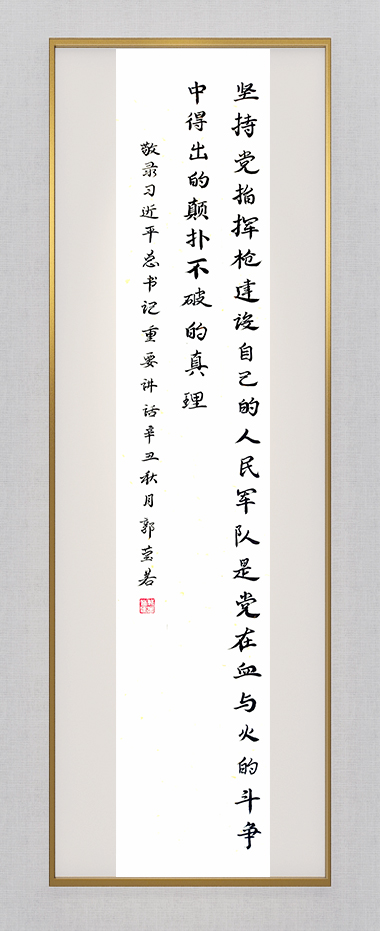 坚持党指挥枪建设自己的人民军队是党在血与火的斗争
中得出的颠扑不破的真理
敬录习近平总书记重要讲话辛丑秋月郭莹若